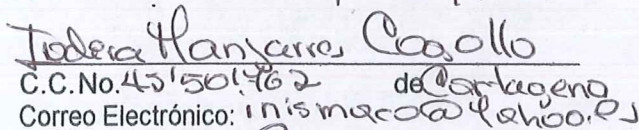 Todera Manjarres Cogollo
C.C.No.45'501.762 de Cartagena
Correo Electrónico: inismaco@yahoo.es